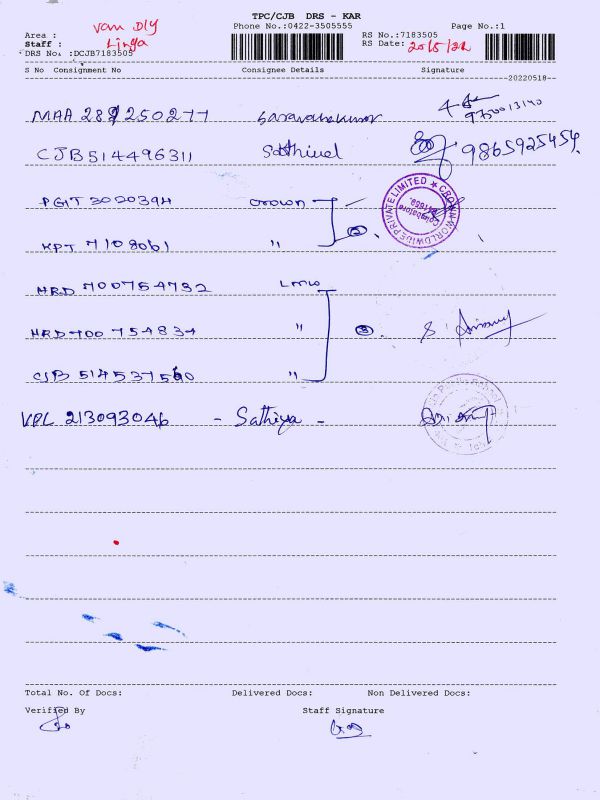 TPC/CJB DRS - KAR
Phone No.:0422-3505555 Page No.:1
Area : Van Dly RS No.:7183505
Staff : Linga RS Date: 20/5/22
DRS No. :DCJB7183505
S No Consignment No Consignee Details Signature
20220518
MAA 289250277 Saravanakumar
CJB514496311 Sakthivel 9865925454
PGIT 3020394 Crown
CROWN WORLDWIDE PRIVATE LIMITED
Coimbatore
KPT 7108061 "
HRD 700754732 LMW
HRD 700 754834 " 3
CJB 514537560 "
VPL 213093046 - Sathiya -
Public School
Total No. Of Docs: Delivered Docs: Non Delivered Docs:
Verified By Staff Signature